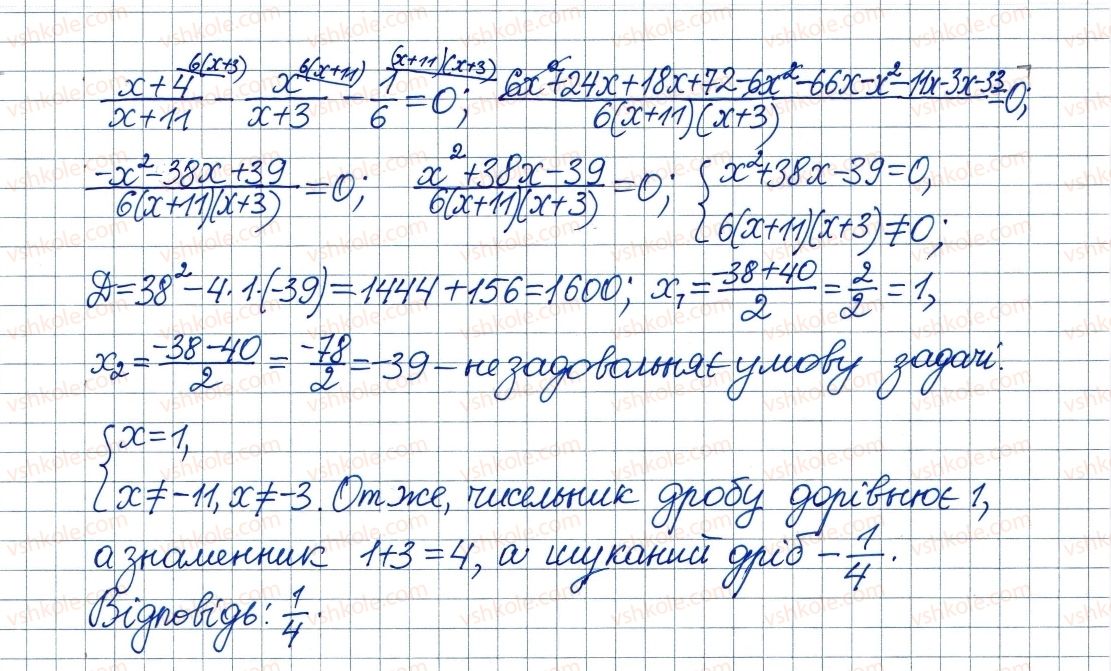 6(x+3) 6(x+11) (x+11)(x+3)
(x+4)/(x+11) - x/(x+3) - 1/6 = 0; (6x²+24x+18x+72-6x²-66x-x²-11x-3x-33)/(6(x+11)(x+3)) = 0;
(-x²-38x+39)/(6(x+11)(x+3)) = 0; (x²+38x-39)/(6(x+11)(x+3)) = 0; { x²+38x-39=0,
6(x+11)(x+3)≠0;
Д=38²-4·1·(-39)=1444+156=1600; x₁=(-38+40)/2=2/2=1,
x₂=(-38-40)/2=-78/2=-39 – не задовольняє умову задачі.
{ x=1,
x≠-11, x≠-3. Отже, чисельник дробу дорівнює 1,
а знаменник 1+3=4, а шуканий дріб – 1/4.
Відповідь: 1/4.